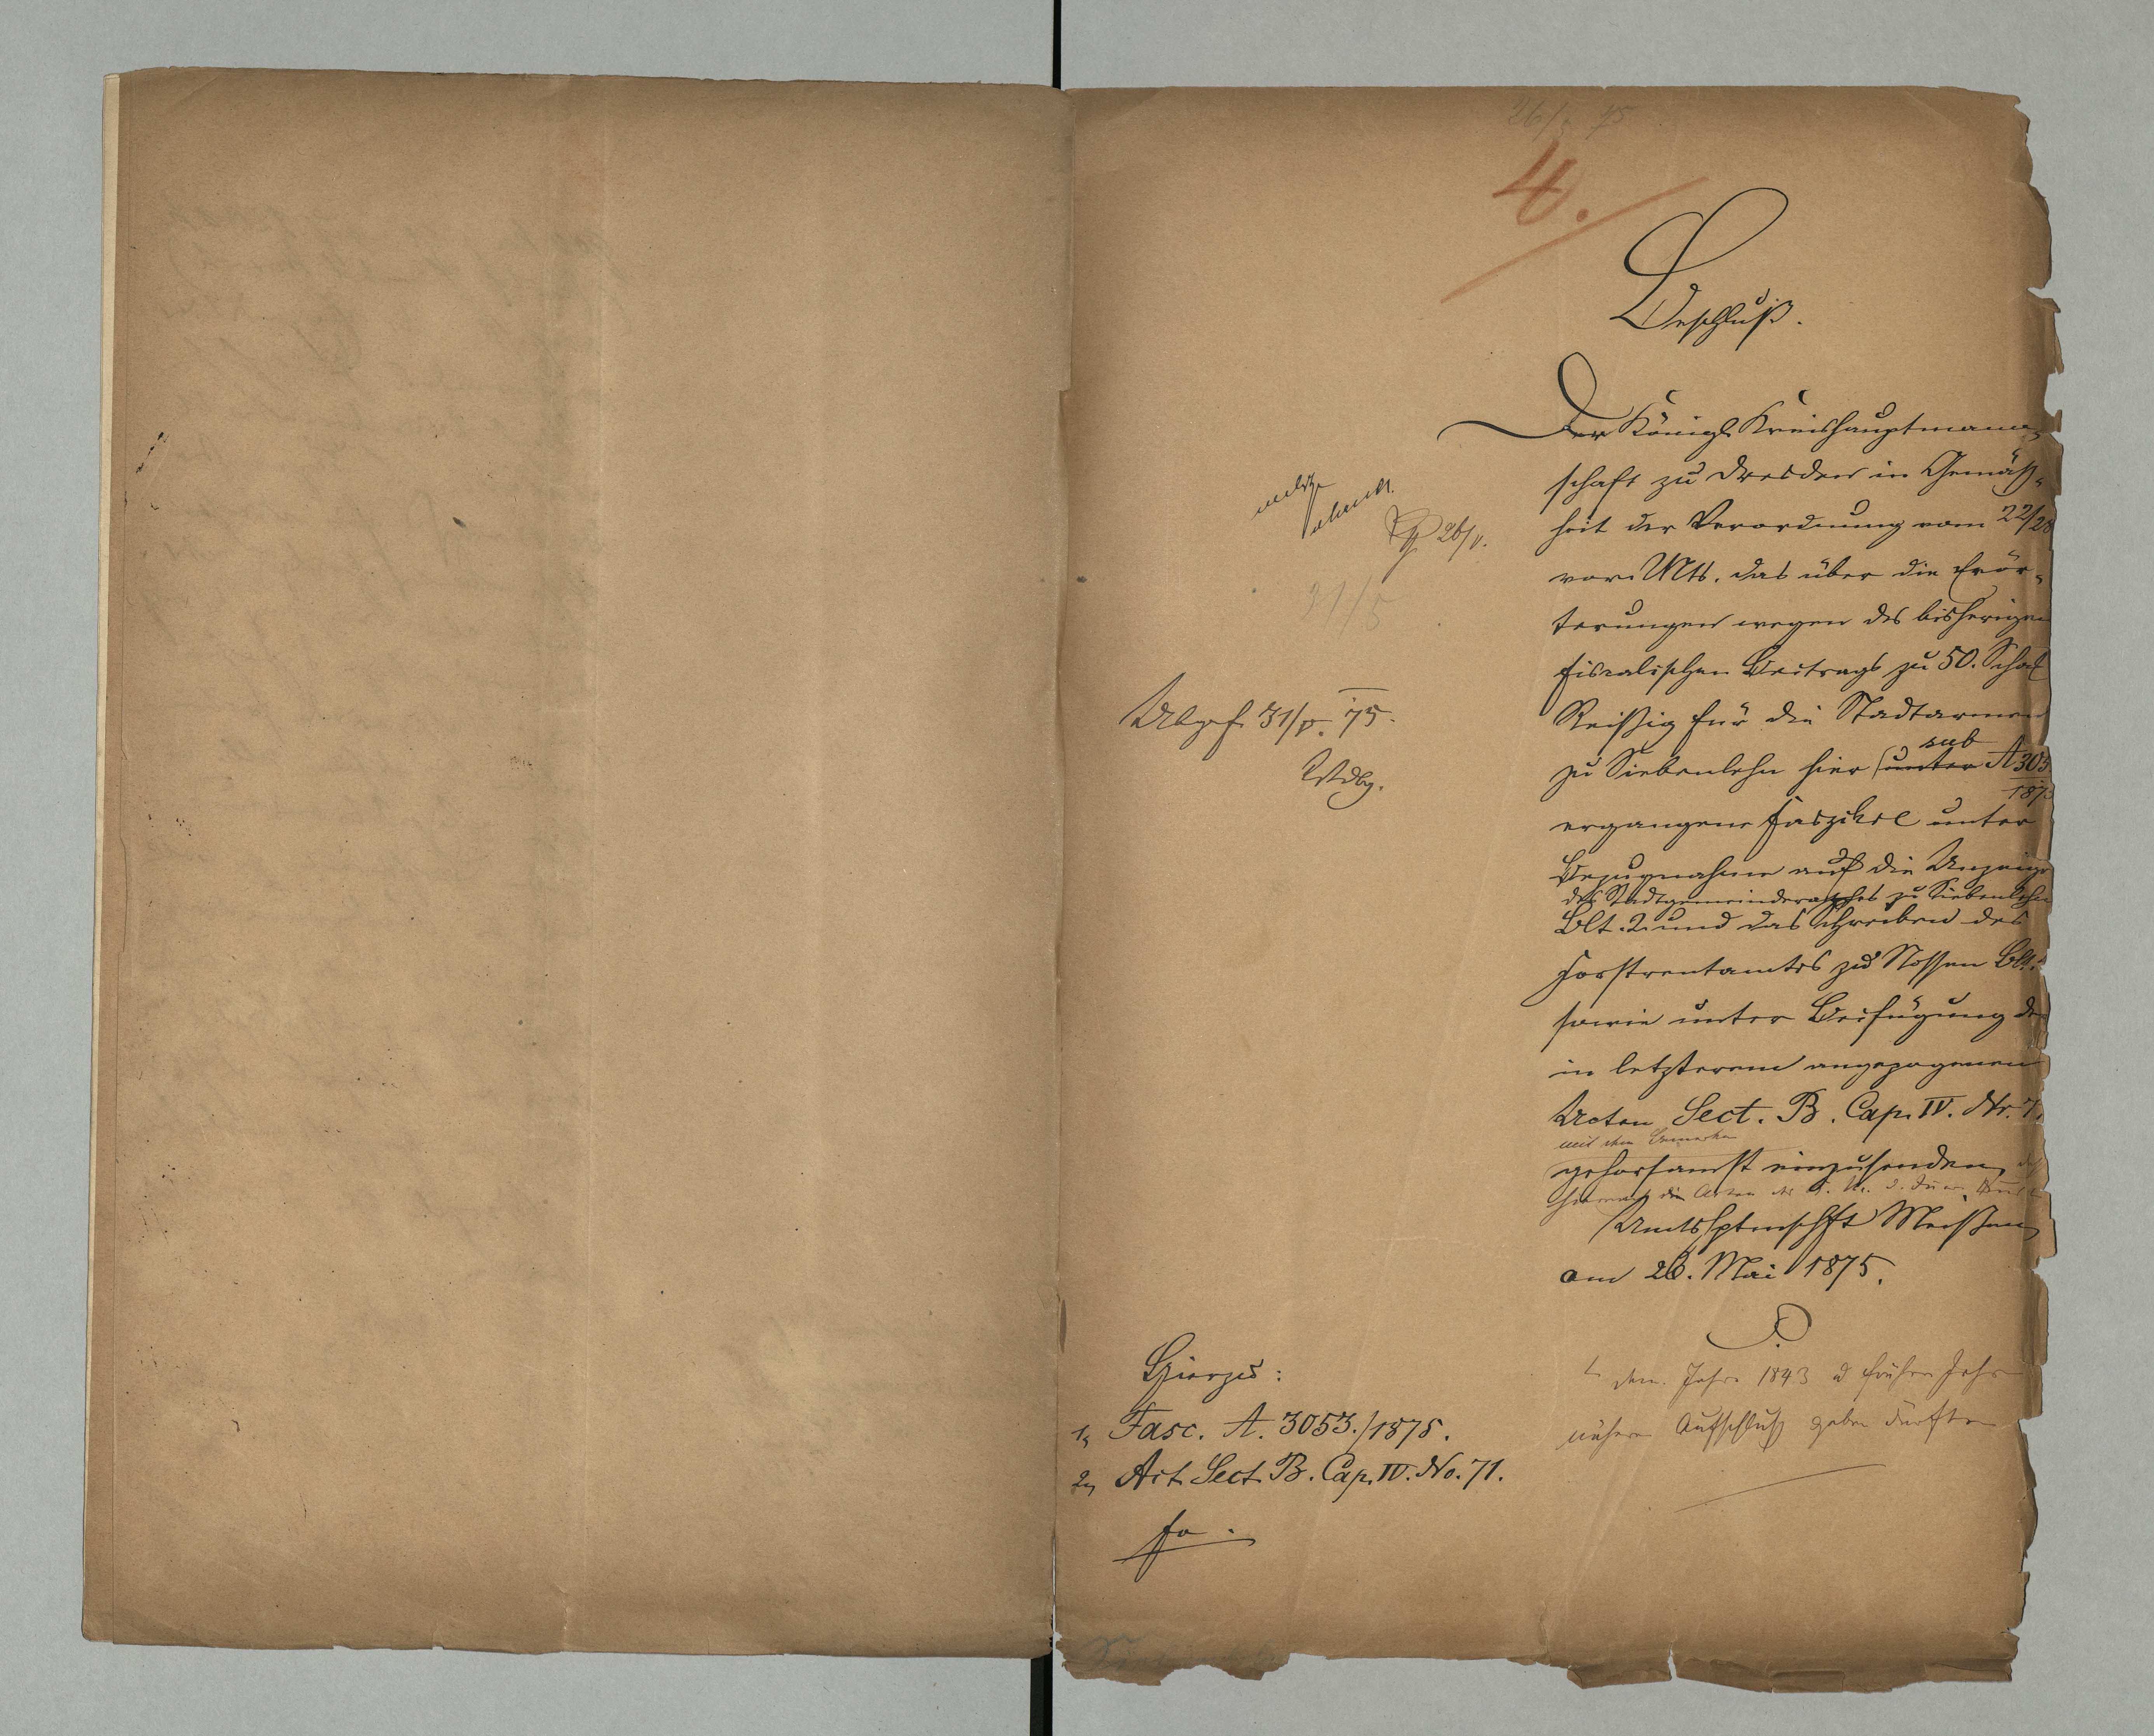 26/5 75
4.
Beschluß.
Der Königl. Kreishauptmann-
schaft zu Dresden in Gemäß-
heit der Verordnung vom 22/28
vor. Mts. das über die Erör-
terungen wegen des bisherigen
fiscalischen Beitrags zu 50. Schock
Reißig für die Stadtarmen
zu Siebenlehn hier (unter sub A 305
187
ergangene Faszikel unter
Bezugnahme auf die Anzeige
des Stadtgemeinderathes zu Siebenlehn
Blt. 2. und das Schreiben des
Forstrentamtes zu Nossen Blt.
sowie unter Beifügung der
in letzterem angezogenen
Acten Sect. B. Cap. IV. Nr. 7
mit dem Bemerken
gehorsamst einzusenden,
hiernach die Acten
Amtshptmschft Meißen,
am 26. Mai 1875.
dem Jahre 1843 u früher Jahre
nähere Aufschluß geben dürften
26/V.
31/5
Abgef. 31/V. 75.
Hierzu:
1, Fasc. A. 3053./1875.
2, Act. Sect. B. Cap. IV. No. 71.